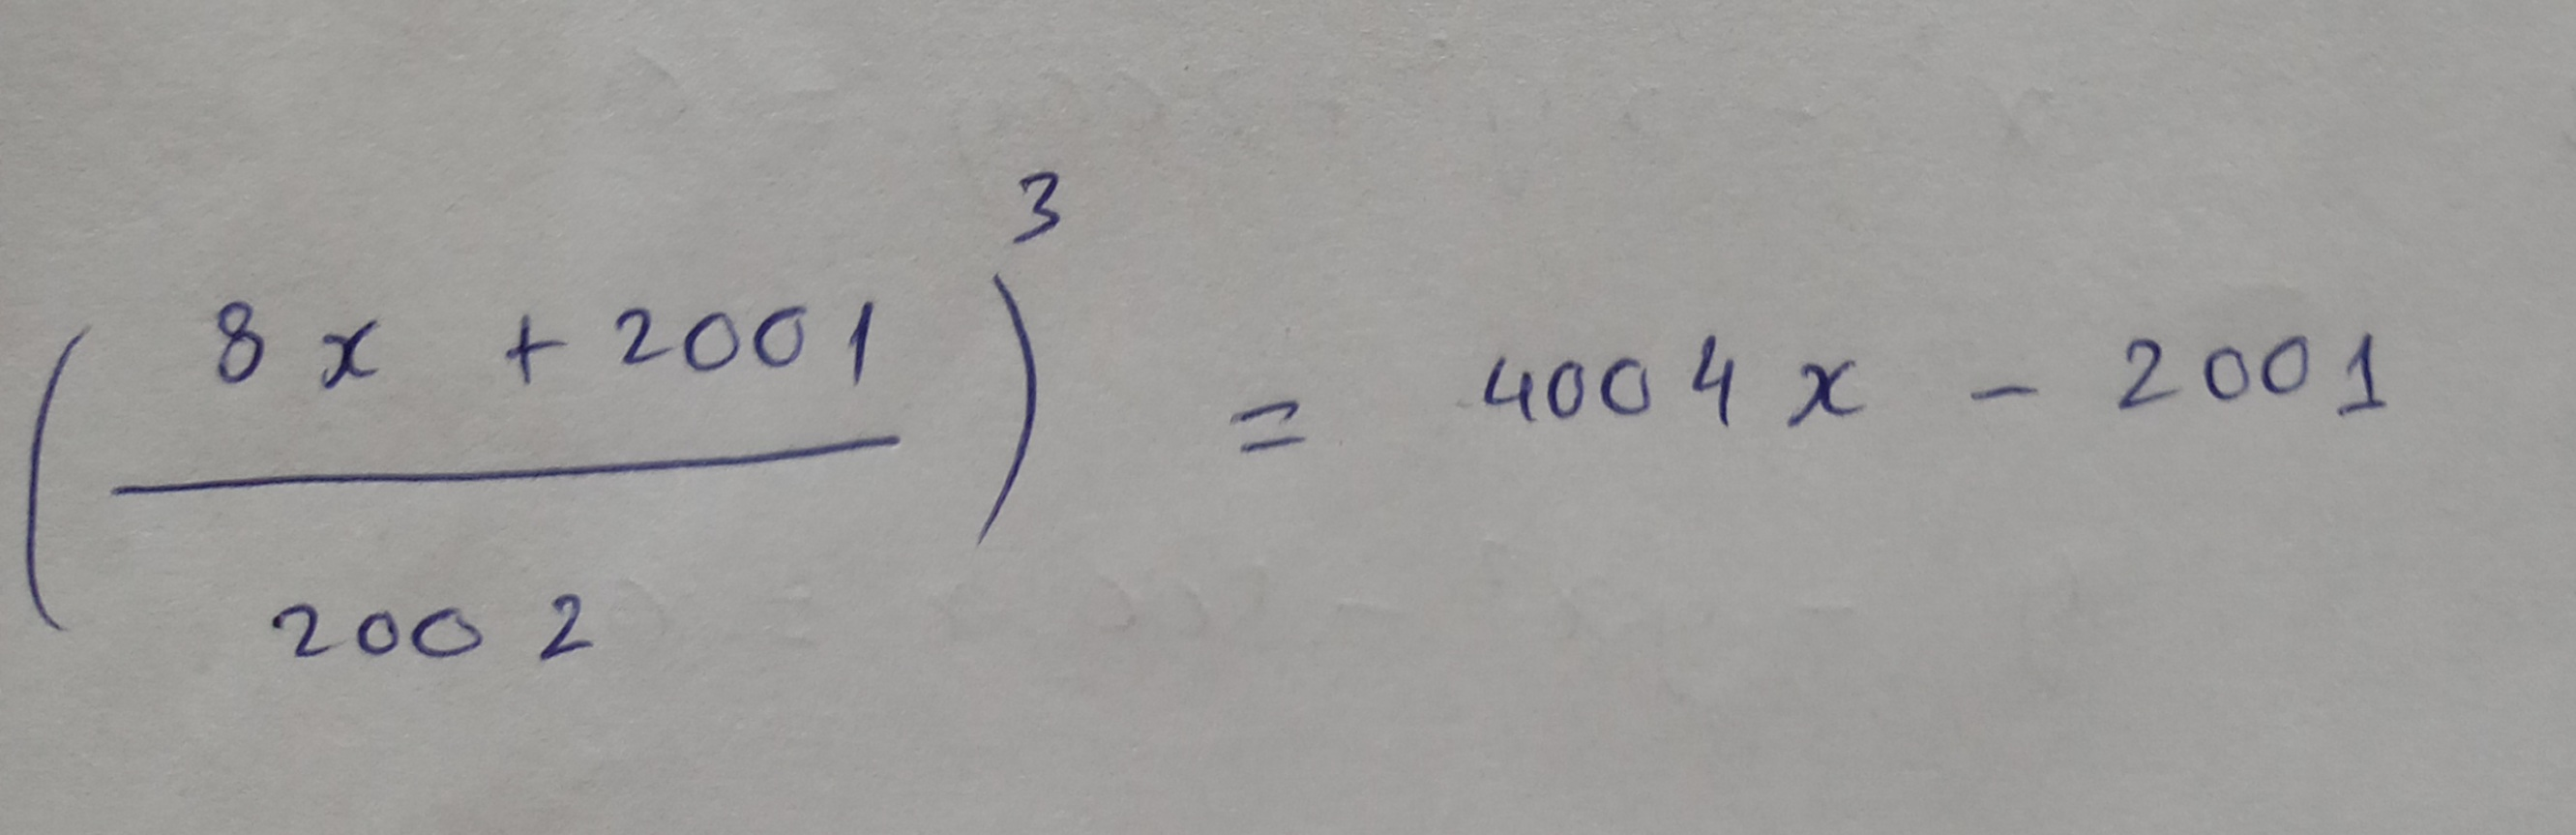 (8x + 2001 / 2002)^3 = 4004x - 2001